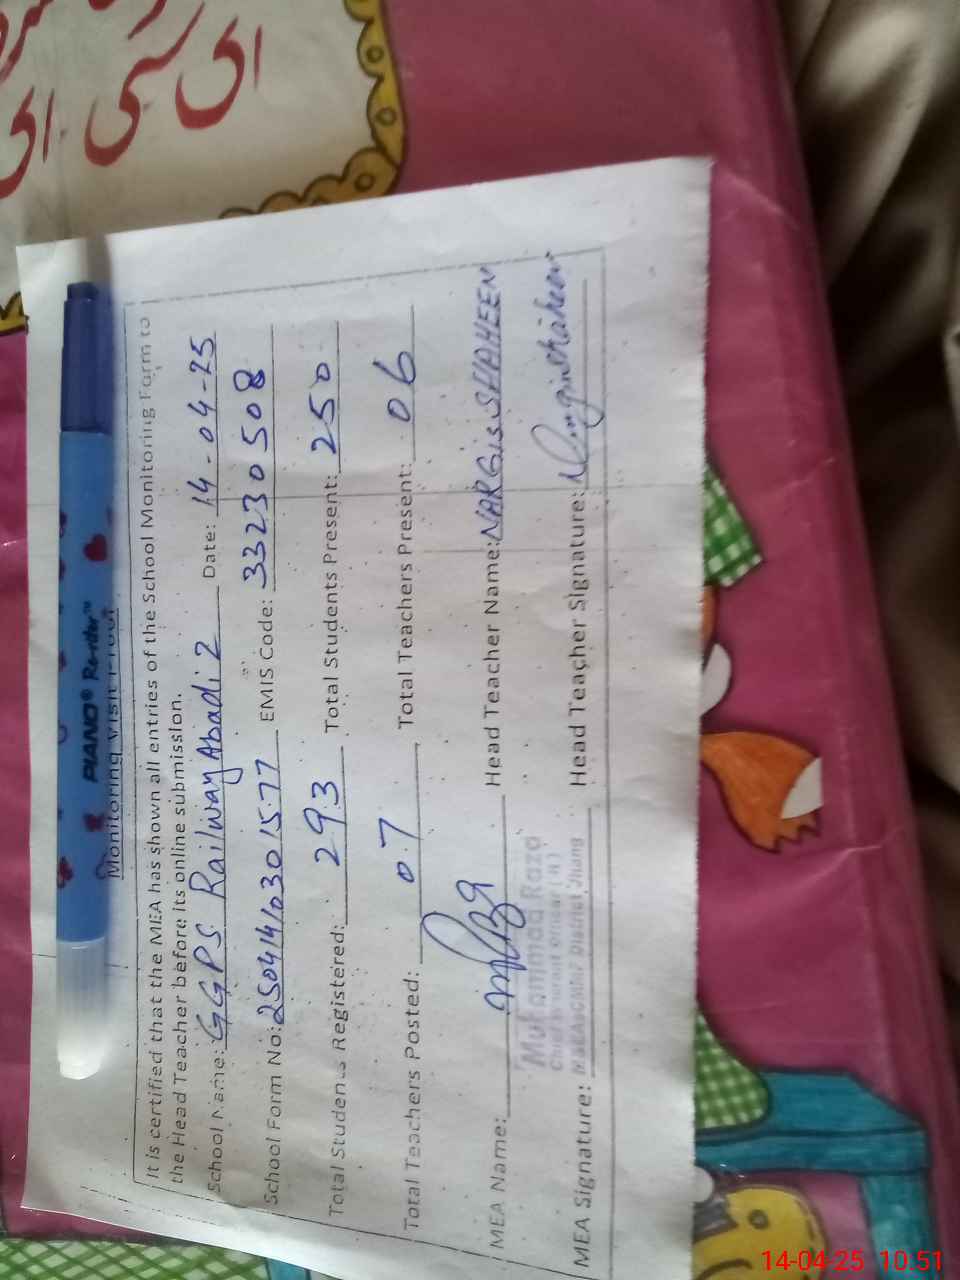 ای سی ای
PIANO® Pointer™
Monitoring Visit Proof
It is certified that the MEA has shown all entries of the School Monitoring Form to
the Head Teacher before its online submission.
School Name: GGPS Railway Abadi 2 Date: 14-04-25
EMIS Code: 33230508
Total Students Registered: 293 Total Students Present: 250
Total Teachers Posted: 07 Total Teachers Present: 06
MEA Name: Head Teacher Name: NARGIS SHAHEEN
Muhammad Raza
MEA Signature: District Jhang Head Teacher Signature: Nargis Shaheen
14-04-25 10.51